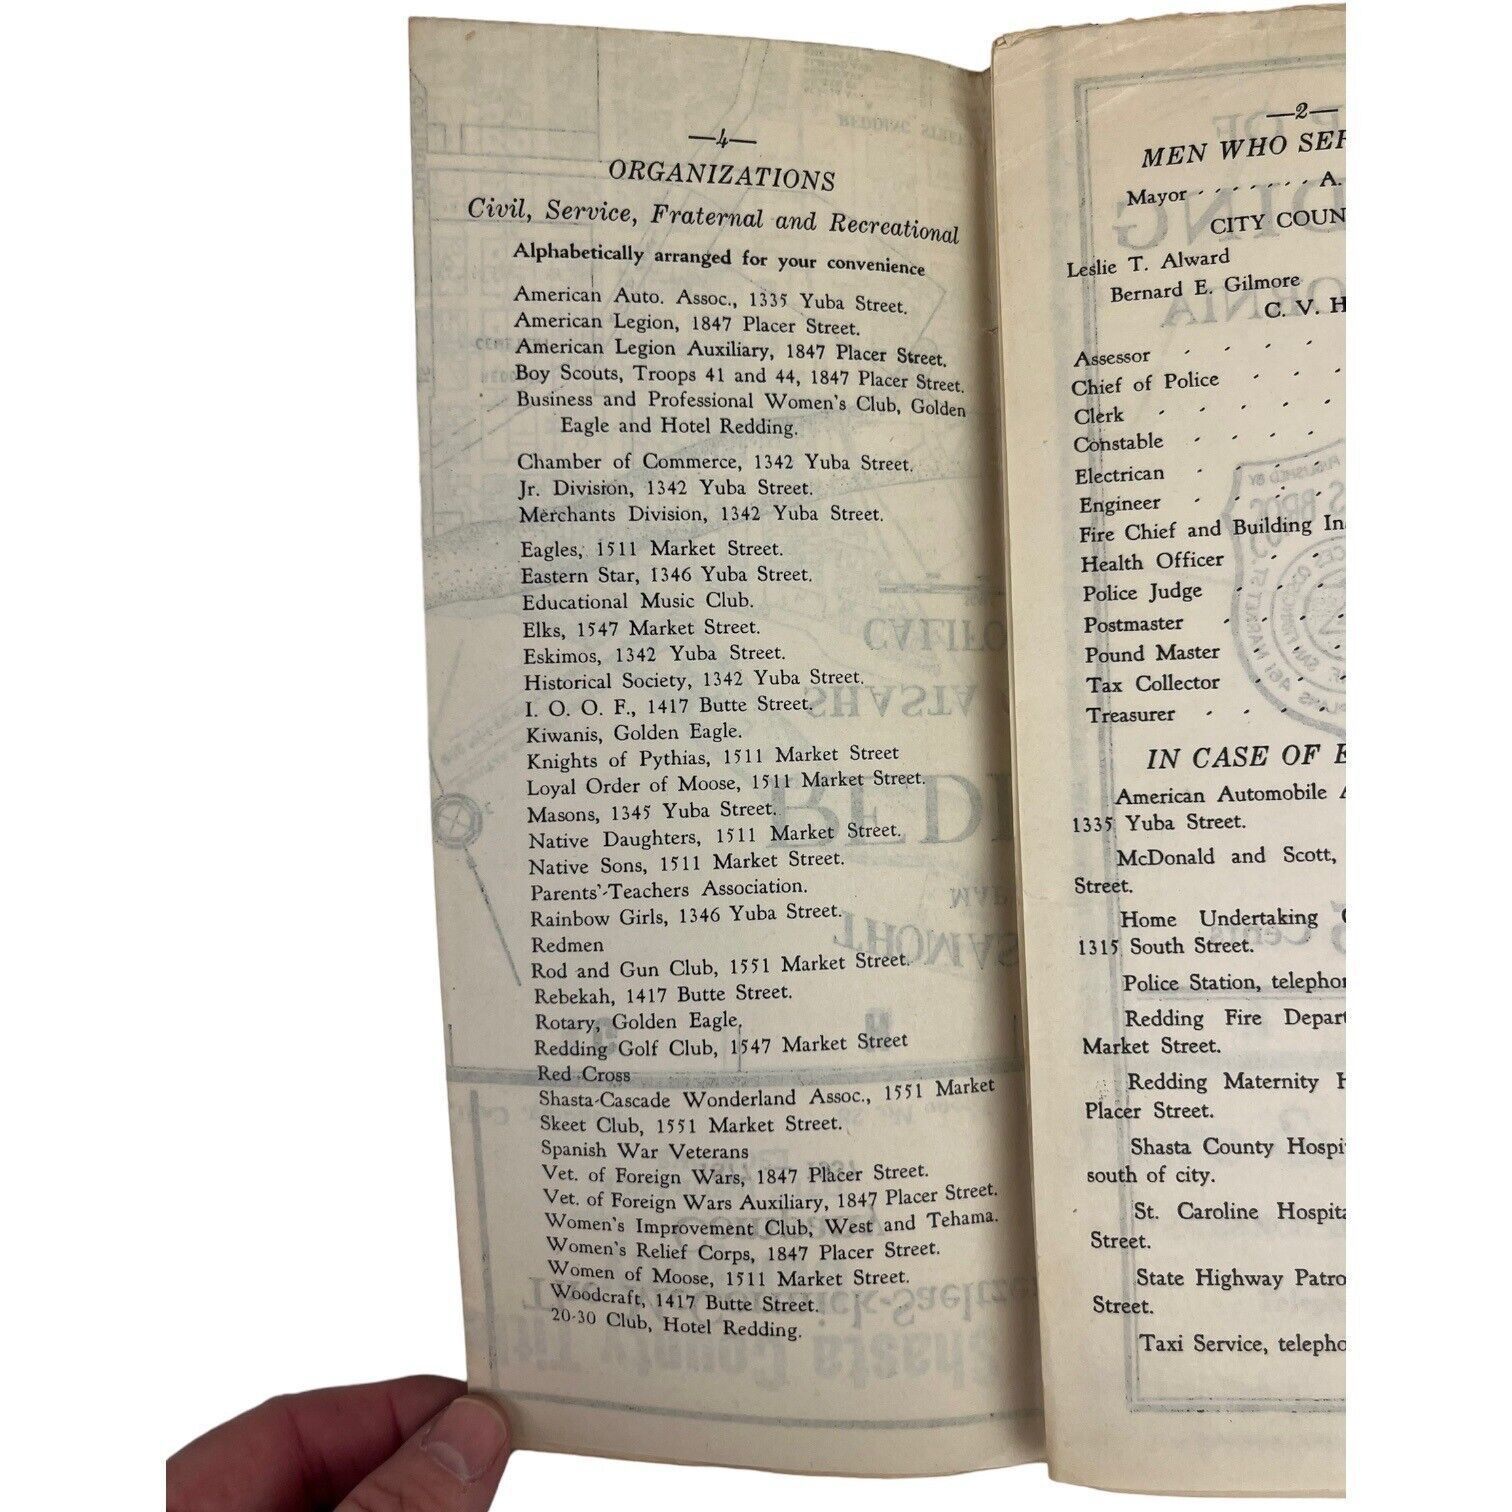 —4—
ORGANIZATIONS
Civil, Service, Fraternal and Recreational
Alphabetically arranged for your convenience
American Auto. Assoc., 1335 Yuba Street.
American Legion, 1847 Placer Street.
American Legion Auxiliary, 1847 Placer Street.
Boy Scouts, Troops 41 and 44, 1847 Placer Street.
Business and Professional Women's Club, Golden
Eagle and Hotel Redding.
Chamber of Commerce, 1342 Yuba Street.
Jr. Division, 1342 Yuba Street.
Merchants Division, 1342 Yuba Street.
Eagles, 1511 Market Street.
Eastern Star, 1346 Yuba Street.
Educational Music Club.
Elks, 1547 Market Street.
Eskimos, 1342 Yuba Street.
Historical Society, 1342 Yuba Street.
I. O. O. F., 1417 Butte Street.
Kiwanis, Golden Eagle.
Knights of Pythias, 1511 Market Street
Loyal Order of Moose, 1511 Market Street.
Masons, 1345 Yuba Street.
Native Daughters, 1511 Market Street.
Native Sons, 1511 Market Street.
Parents'-Teachers Association.
Rainbow Girls, 1346 Yuba Street.
Redmen
Rod and Gun Club, 1551 Market Street.
Rebekah, 1417 Butte Street.
Rotary, Golden Eagle.
Redding Golf Club, 1547 Market Street
Red Cross
Shasta-Cascade Wonderland Assoc., 1551 Market
Skeet Club, 1551 Market Street.
Spanish War Veterans
Vet. of Foreign Wars, 1847 Placer Street.
Vet. of Foreign Wars Auxiliary, 1847 Placer Street.
Women's Improvement Club, West and Tehama.
Women's Relief Corps, 1847 Placer Street.
Women of Moose, 1511 Market Street.
Woodcraft, 1417 Butte Street.
20-30 Club, Hotel Redding.
—2—
MEN WHO SER
Mayor . . . . . . . A.
CITY COUN
Leslie T. Alward
Bernard E. Gilmore
C. V. H
Assessor
Chief of Police
Clerk
Constable
Electrican
Engineer
Fire Chief and Building In
Health Officer
Police Judge
Postmaster
Pound Master
Tax Collector
Treasurer
IN CASE OF E
American Automobile A
1335 Yuba Street.
McDonald and Scott,
Street.
Home Undertaking C
1315 South Street.
Police Station, telepho
Redding Fire Depar
Market Street.
Redding Maternity H
Placer Street.
Shasta County Hospi
south of city.
St. Caroline Hospita
Street.
State Highway Patro
Street.
Taxi Service, telepho